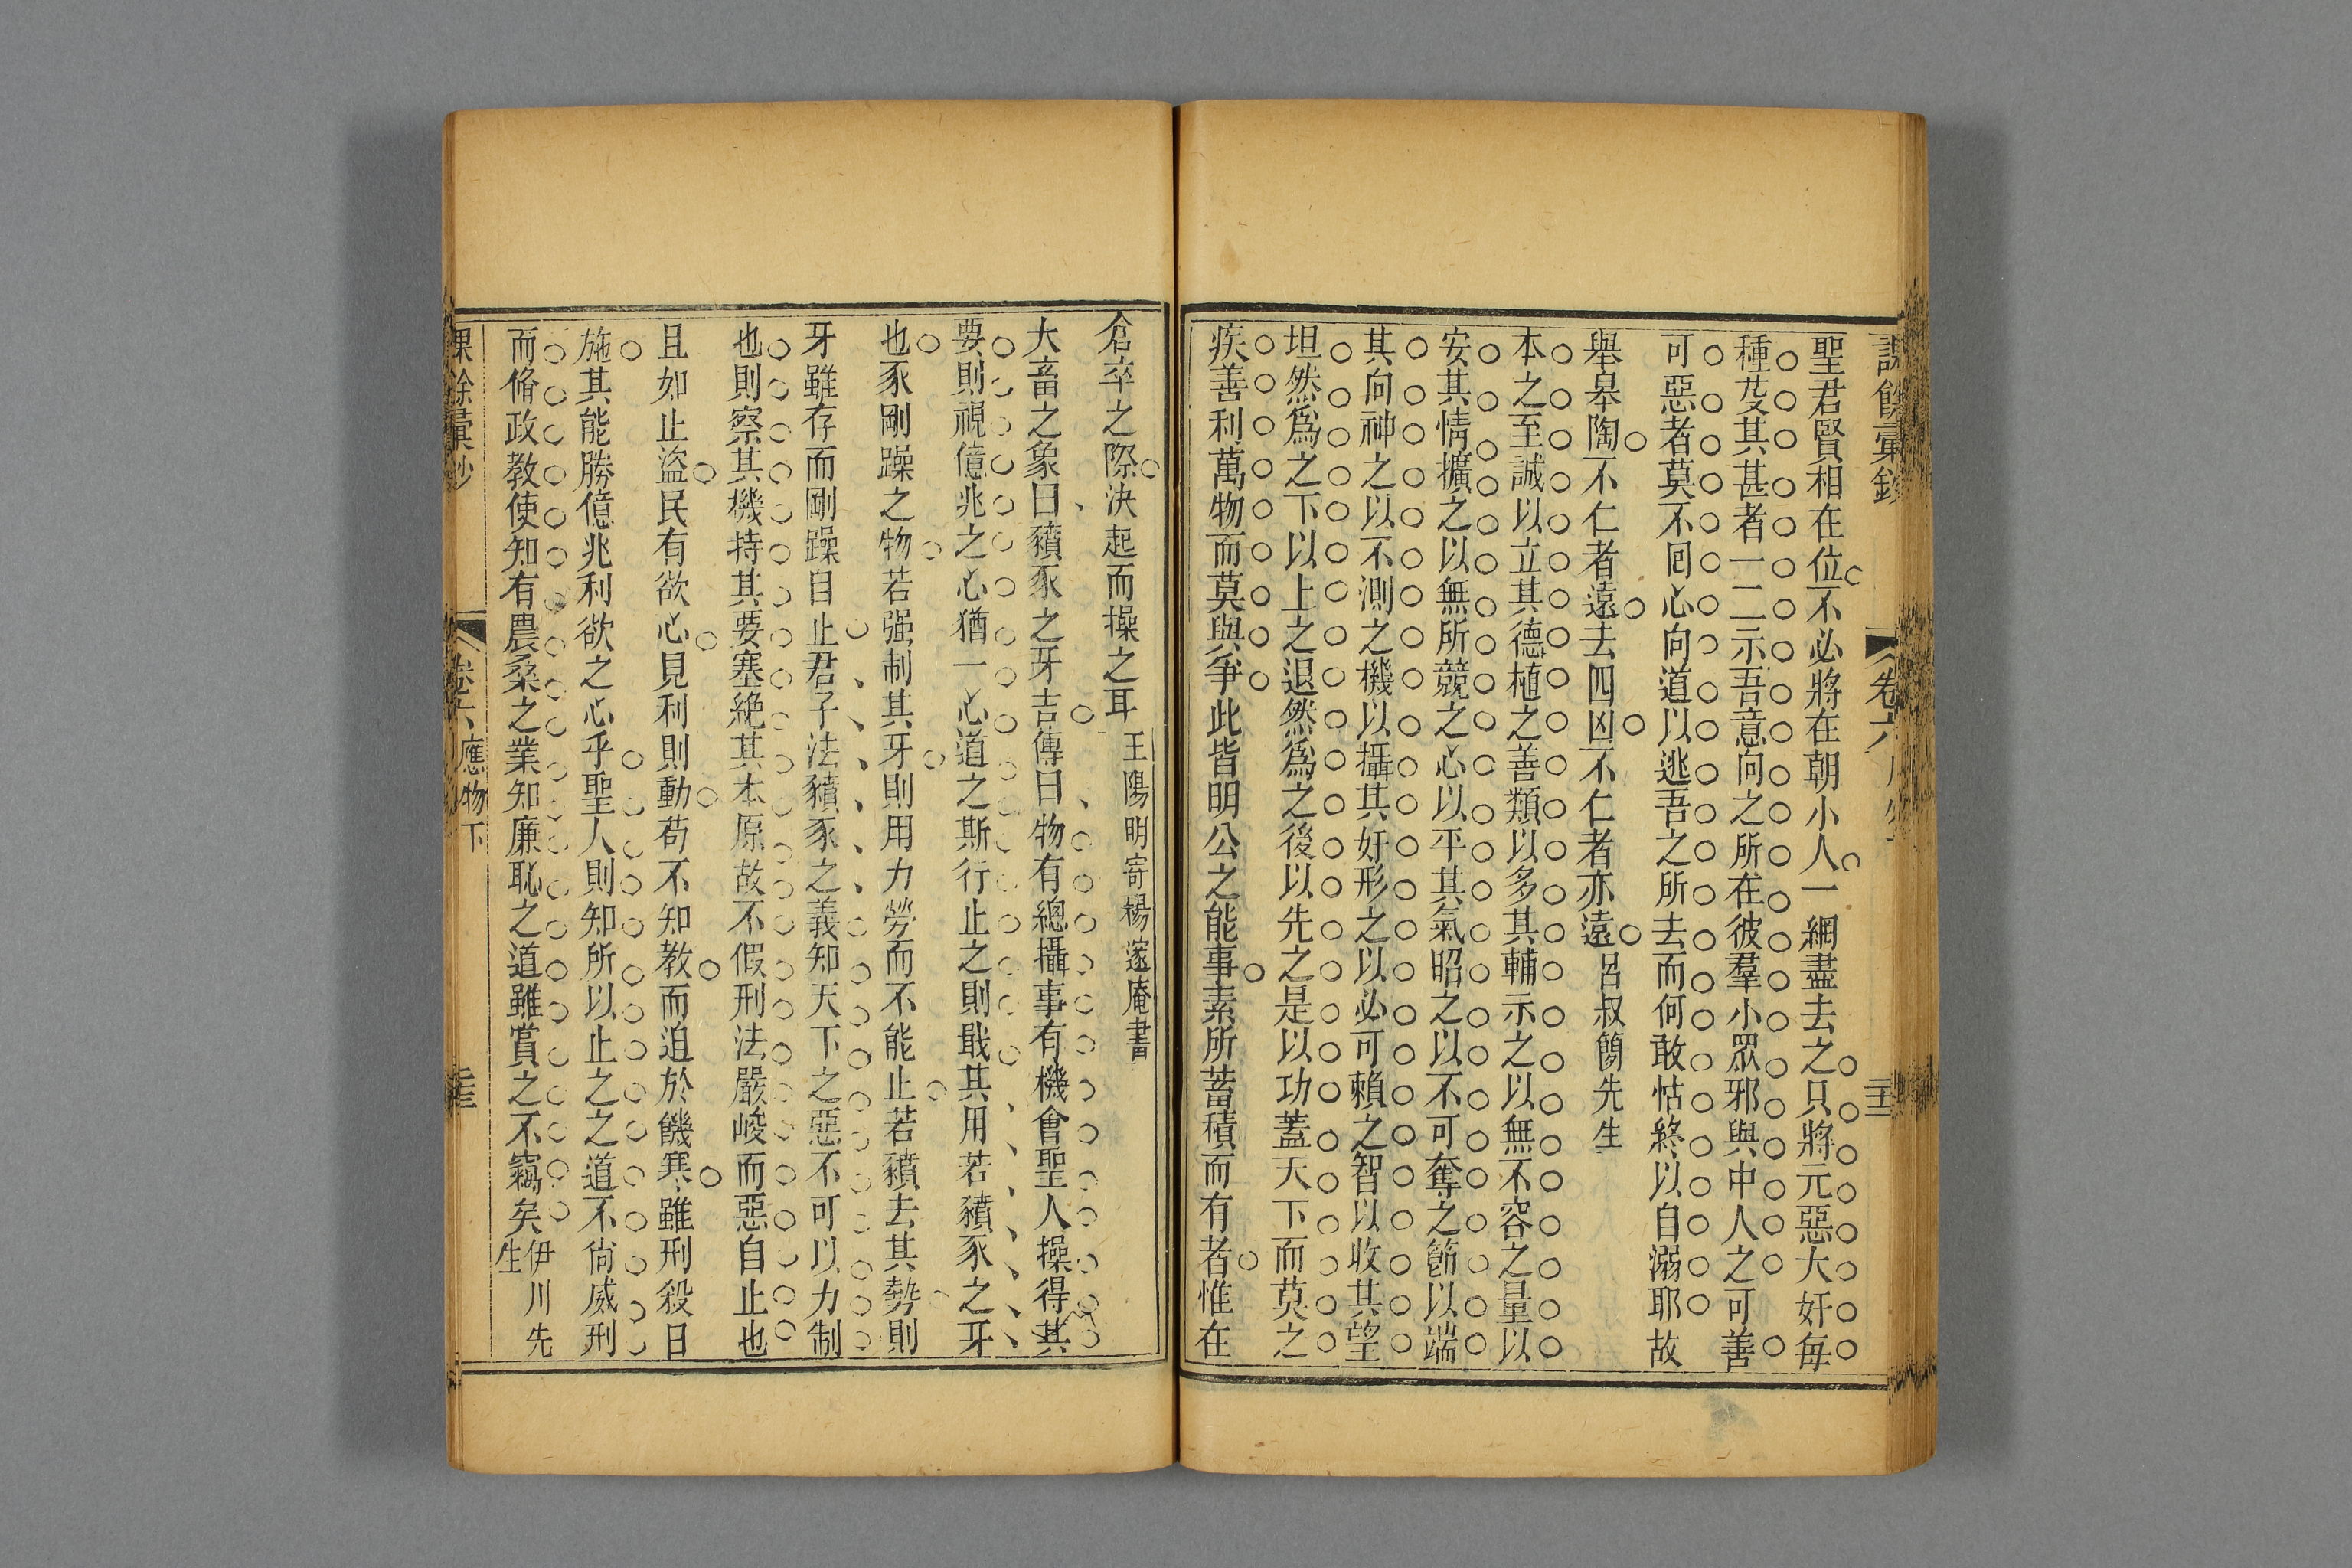 課餘彙鈔
卷六
聖君賢相在位不必將在朝小人一網盡去之只將元惡大奸每
種芟其甚者一二示吾意向之所在彼羣小眾邪與中人之可善
可惡者莫不回心向道以逃吾之所去而何敢怙終以自溺耶故
舉皋陶不仁者遠去四凶不仁者亦遠 呂叔簡先生
本之至誠以立其德植之善類以多其輔示之以無不容之量以
安其情擴之以無所競之心以平其氣昭之以不可奪之節以端
其向神之以不測之機以攝其奸形之以必可賴之智以收其望
坦然爲之下以上之退然爲之後以先之是以功蓋天下而莫之
疾善利萬物而莫與爭此皆明公之能事素所蓄積而有者惟在
倉卒之際決起而操之耳 王陽明寄楊邃庵書
大畜之象曰豶豕之牙吉傳曰物有總攝事有機會聖人操得其
要則視億兆之心猶一心道之斯行止之則戢其用若豶豕之牙
也豕剛躁之物若强制其牙則用力勞而不能止若豶去其勢則
牙雖存而剛躁自止君子法豶豕之義知天下之惡不可以力制
也則察其機持其要塞絶其本原故不假刑法嚴峻而惡自止也
且如止盜民有欲心見利則動苟不知教而迫於饑寒雖刑殺日
施其能勝億兆利欲之心乎聖人則知所以止之之道不尙威刑
而脩政教使知有農桑之業知廉恥之道雖賞之不竊矣 伊川先
生
課餘彙鈔
卷六 應物下